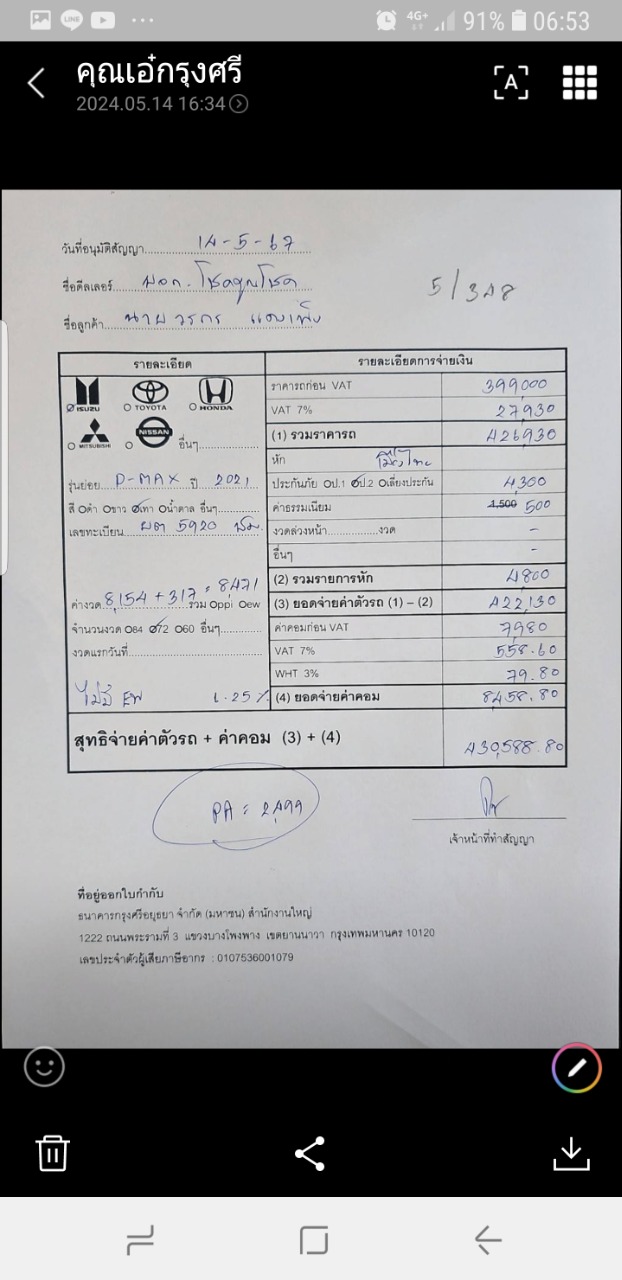 4G+ 91% 06:53
คุณเอ๋กรุงศรี
2024.05.14 16:34
วันที่อนุมัติสัญญา 14-5-67
ชื่อดีลเลอร์ หจก. โชคคูณโชค
5/348
ชื่อลูกค้า นาย วรกร
รายละเอียด
รายละเอียดการจ่ายเงิน
ISUZU TOYOTA HONDA
MITSUBISHI NISSAN อื่นๆ
ราคารถก่อน VAT 399,000
VAT 7% 27,930
(1) รวมราคารถ 426,930
หัก เมืองไทย
รุ่นย่อย D-MAX ปี 2021
ประกันภัย Oป.1 Oป.2 Oเลี่ยงประกัน 4,300
สี Oดำ Oขาว Oเทา Oน้ำตาล อื่นๆ
ค่าธรรมเนียม 1,500 500
เลขทะเบียน ผต 5920 ชม.
งวดล่วงหน้า งวด -
อื่นๆ -
(2) รวมรายการหัก 4,800
ค่างวด 8,154 + 317 = 8,471 รวม Oppi Oew
(3) ยอดจ่ายค่าตัวรถ (1) – (2) 422,130
จำนวนงวด O84 O72 O60 อื่นๆ
ค่าคอมก่อน VAT 7,980
งวดแรกวันที่
VAT 7% 558.60
WHT 3% 79.80
ไม่มี EW 1.25%
(4) ยอดจ่ายค่าคอม 8,458.80
สุทธิจ่ายค่าตัวรถ + ค่าคอม (3) + (4) 430,588.80
PA = 2,499
เจ้าหน้าที่ทำสัญญา
ที่อยู่ออกใบกำกับ
ธนาคารกรุงศรีอยุธยา จำกัด (มหาชน) สำนักงานใหญ่
1222 ถนนพระรามที่ 3 แขวงบางโพงพาง เขตยานนาวา กรุงเทพมหานคร 10120
เลขประจำตัวผู้เสียภาษีอากร : 0107536001079